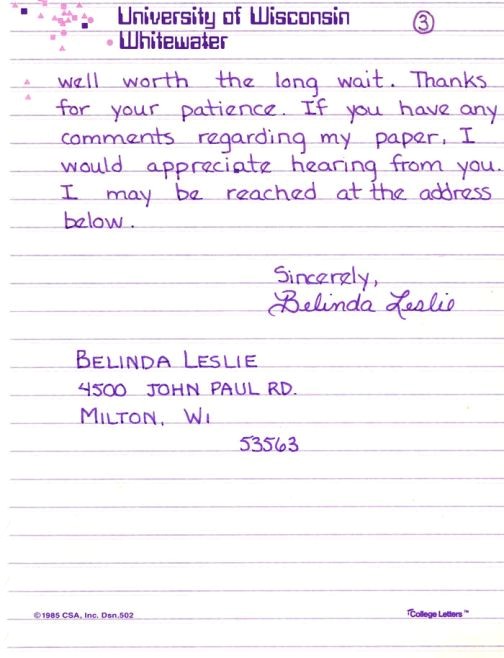 University of Wisconsin
Whitewater
3
well worth the long wait. Thanks
for your patience. If you have any
comments regarding my paper, I
would appreciate hearing from you.
I may be reached at the address
below.
Sincerely,
Belinda Leslie
BELINDA LESLIE
4500 JOHN PAUL RD.
MILTON, WI
53563
©1985 CSA, Inc. Dsn.502
College Letters™